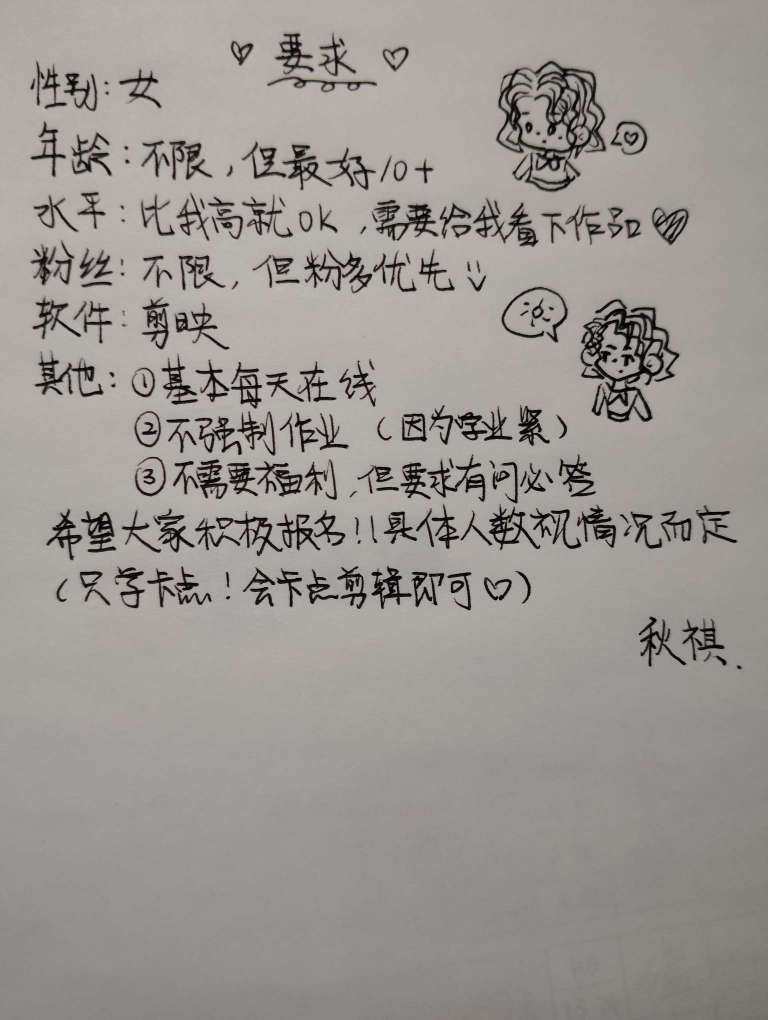 要求
性别：女
年龄：不限，但最好10+
水平：比我高就OK，需要给我看下作品
粉丝：不限，但粉多优先
软件：剪映
其他：①基本每天在线
②不强制作业（因为学业紧）
③不需要福利，但要求有问必答
希望大家积极报名！！具体人数视情况而定
（只学卡点！会卡点剪辑即可♡）
秋祺.